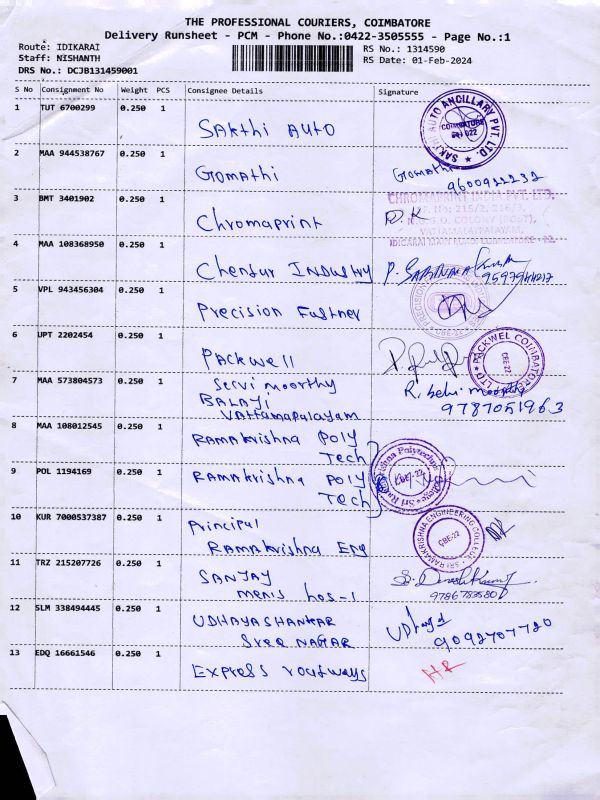 THE PROFESSIONAL COURIERS, COIMBATORE
Delivery Runsheet - PCM - Phone No.:0422-3505555 - Page No.:1
Route: IDIKARAI RS No.: 1314590
Staff: NISHANTH RS Date: 01-Feb-2024
DRS No.: DCJB131459001
S No Consignment No Weight PCS Consignee Details Signature
1 TUT 6700299 0.250 1 SAkthi AUTO
SAKTHI AUTO ANCILLARY PVT. LTD. COIMBATORE
2 MAA 944538767 0.250 1 Gomathi Gomathi
9600922232
3 BMT 3401902 0.250 1 Chromaprint D.K
CHROMAPRINT INDIA PVT. LTD.
VATTAMALAIPALAYAM,
4 MAA 108368950 0.250 1 Chendur INDUStRY
5 VPL 943456304 0.250 1 Precision Fastner
6 UPT 2202454 0.250 1 PACKwell
PACKWEL COIMBATORE CBE-22 LTD
7 MAA 573804573 0.250 1 Selvi moorthy
BALAJI
VAttamapalayam
9787051963
8 MAA 108012545 0.250 1 RAMAkrishna POLY
Tech
9 POL 1194169 0.250 1 RAMAkrishna POLY
Tech
Sri Ramakrishna Polytechnic College CBE-22
10 KUR 7000537387 0.250 1 Principal
RAMAkrishna Eng
SRI RAMAKRISHNA ENGINEERING COLLEGE CBE-22
11 TRZ 215207726 0.250 1 SANJAY
mens hos-1
12 SLM 338494445 0.250 1 UDHAYA SHANKAR
Sree NAGAR
9092707720
13 EDQ 16661546 0.250 1 Express roadways HR